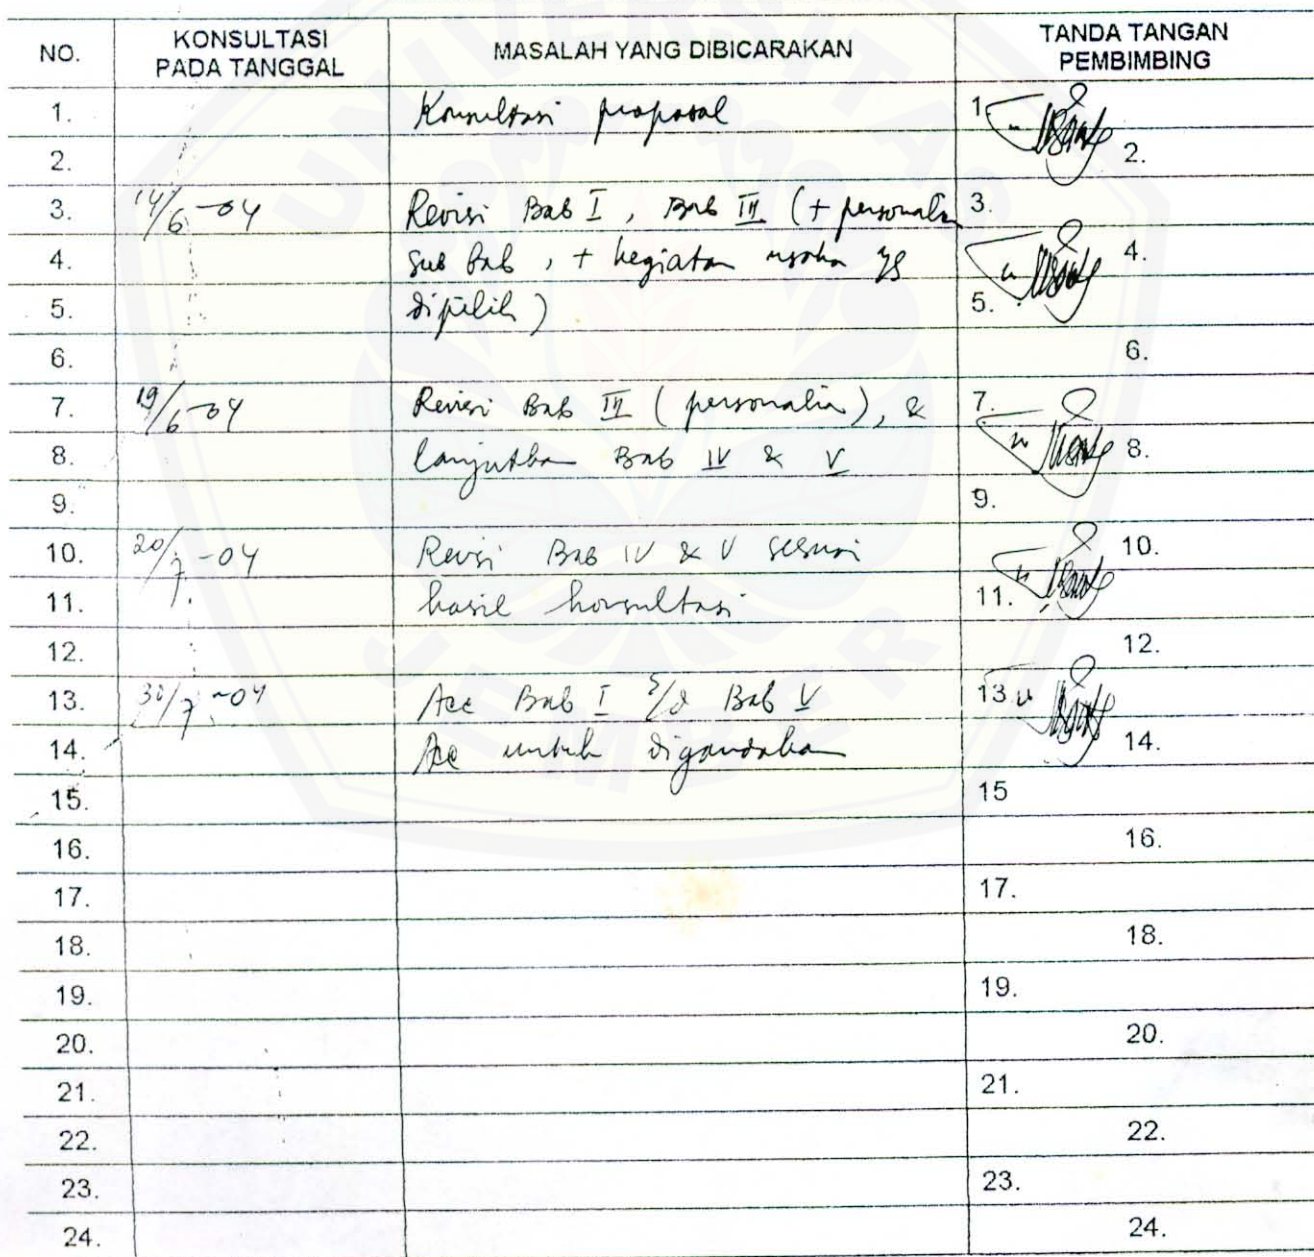 UNIVERSITAS
JEMBER
NO. KONSULTASI PADA TANGGAL MASALAH YANG DIBICARAKAN TANDA TANGAN PEMBIMBING
1. Konsultasi proposal 1
2. 2.
3. 14/6-04 Revisi Bab I, Bab III (+ personalia 3.
4. sub bab, + kegiatan usaha yg 4.
5. dipilih) 5.
6. 6.
7. 19/6-04 Revisi Bab III (personalia), & 7.
8. lanjutkan Bab IV & V 8.
9. 9.
10. 20/7-04 Revisi Bab IV & V sesuai 10.
11. hasil konsultasi 11.
12. 12.
13. 30/7-04 Acc Bab I s/d Bab V 13
14. Acc untuk digandakan 14.
15. 15
16. 16.
17. 17.
18. 18.
19. 19.
20. 20.
21. 21.
22. 22.
23. 23.
24. 24.